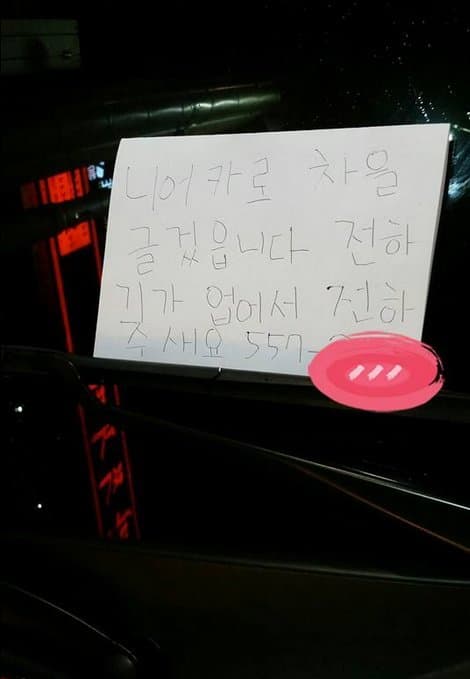 니어카로 차을
글겄읍니다 전하
기가 업어서 전하
주새요 557-